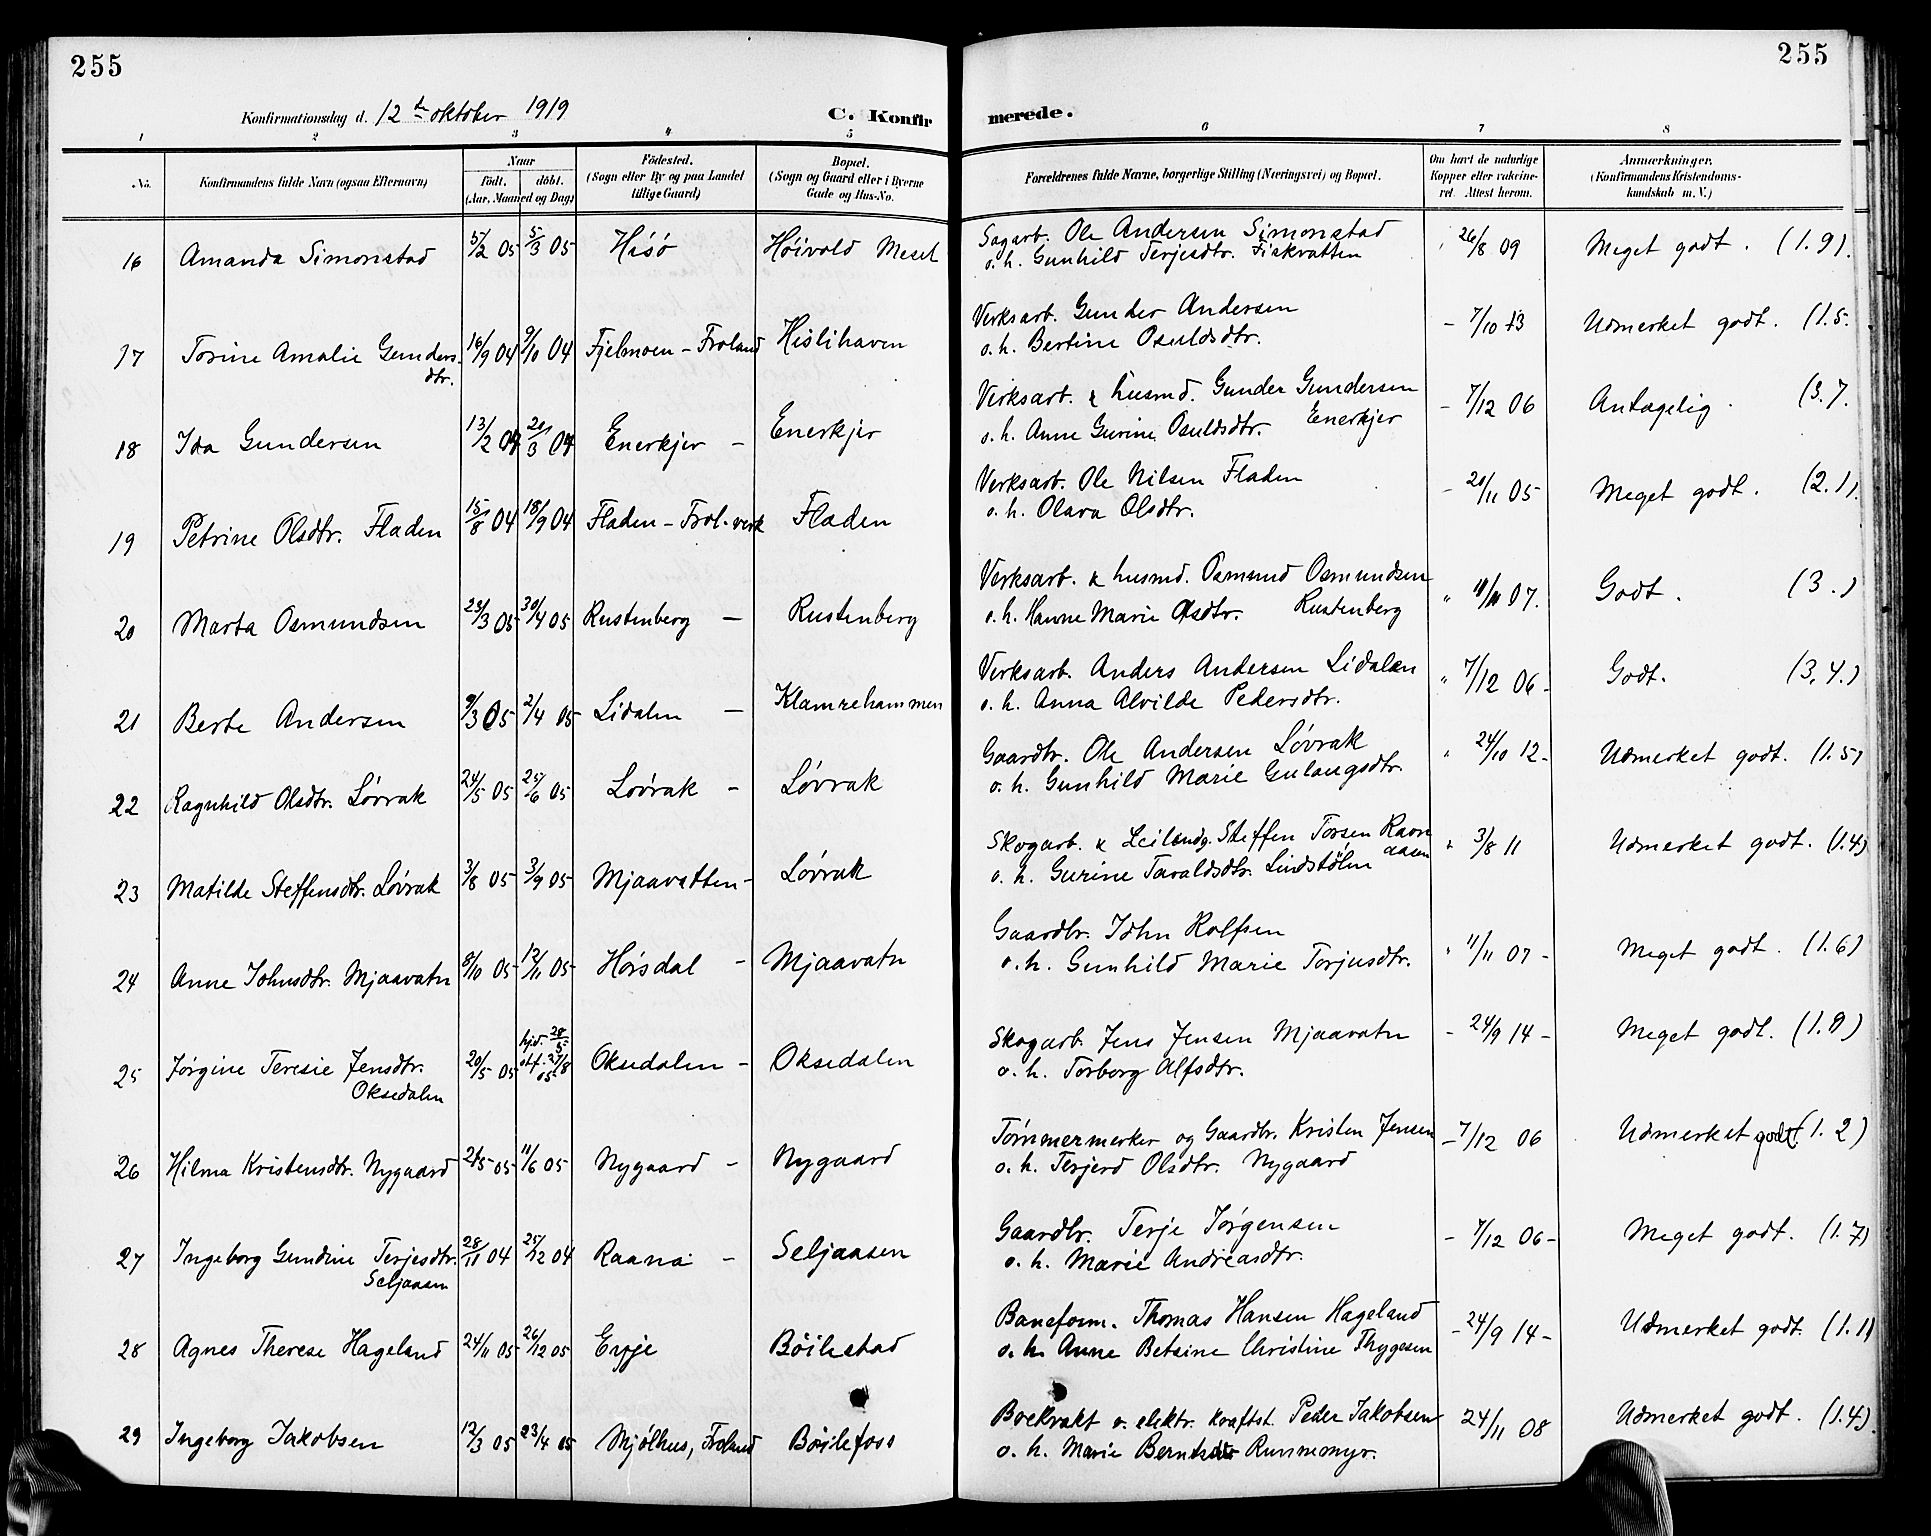 255
255
Konfirmationsdag d. 12 te oktober 1919
C. Konfirmerede.
1 2 3 4 5 6 7 8
No. Konfirmandens fulde Navn (ogsaa Efternavn) Naar født. døbt. (Aar, Maaned og Dag) Fødested. (Sogn eller By og paa Landet tillige Gaard) Bopæl. (Sogn og Gaard eller i Byerne Gade og Hus-No. Forældrenes fulde Navne, borgerlige Stilling (Næringsvei) og Bopæl. Om havt de naturlige Kopper eller vakcineret. Attest herom. Anmærkninger. (Konfirmandens Kristendomskundskab m. V.)
16 Amanda Simonstad 5/2 05 5/3 05 Hisö Høivold Mesel Sagarb. Ole Andersen Simonstad
o. h. Gunhild Terjesdtr. Fiskvatten 26/8 09 Meget godt. (1.9).
17 Torine Amalie Gundersdtr. 16/9 04 9/10 04 Fjelmoen - Froland Hislihaven Verksarb. Gunder Andersen
o. h. Bertine Osuldsdtr. - 7/10 13 Udmerket godt. (1.5.
18 Ida Gundersen 13/2 04 20/3 04 Enerkjer - Enerkjer Verksarb. & husmd. Gunder Gundersen
o. h. Anne Gurine Osuldsdtr. Enerkjer - 7/12 06 Antagelig. (3.7.
19 Petrine Olsdtr. Fladen 15/8 04 18/9 04 Fladen - Frol. verk Fladen Verksarb. Ole Nilsen Fladen
o. h. Olava Olsdtr. - 20/11 05 Meget godt. (2.1).
20 Marta Osmundsen 23/3 05 30/4 05 Rustenberg - Rustenberg Verksarb. & husmd. Osmund Osmundsen
o. h. Hanne Marie Olsdtr. Rustenberg " 11/11 07. Godt. (3.)
21 Berte Andersen 9/3 05 2/4 05 Lidalen - Klamrehammen Verksarb. Anders Andersen Lidalen
o. h. Anna Alvilde Pedersdtr. " 7/12 06- Godt. (3,4.)
22 Ragnhild Olsdtr. Løvrak 24/5 05 25/6 05 Løvrak - Løvrak Gaardbr. Ole Andersen Løvrak
o. h. Gunhild Marie Gulaugsdtr. " 24/10 12- Udmerket godt. (1.5)
23 Matilde Steffensdtr. Løvrak 3/8 05 3/9 05 Mjaavatten - Løvrak Skogarb. & Leilendg. Steffen Torsen Ravnaasen
o. h. Gurine Tavaldsdtr. Lindstølen " 3/8 11 Udmerket godt. (1.4)
24 Anne Johnsdtr. Mjaavatn 8/10 05 12/11 05 Hørsdal - Mjaavatn Gaardbr. John Rolfsen
o. h. Gunhild Marie Torjusdtr. " 11/11 07- Meget godt. (1.6)
25 Jørgine Teresie Jensdtr.
Oksedalen 20/5 05 hjd. 28/5 stf. 27/8 05 Oksedalen - Oksedalen Skogarb. Jens Jensen Mjaavatn
o. h. Torborg Alfsdtr. - 24/9 14- Meget godt. (1.9)
26 Hilma Kristensdtr. Nygaard 2/5 05 11/6 05 Nygaard - Nygaard Tømmermerker og Gaardbr. Kristen Jensen
o. h. Terjerd Olsdtr. Nygaard - 7/12 06 Udmerket godt (1.2)
27 Ingeborg Gundine Terjesdtr.
Seljaasen 28/11 04 25/12 04 Raana - Seljaasen Gaardbr. Terje Jørgensen
o. h. Marie Andreasdtr. - 7/12 06- Meget godt. (1.7)
28 Agnes Therese Hageland 24/11 05 26/12 05 Evje Bøilestad Baneform. Thomas Hansen Hageland
o. h. Anne Betsine Christine Thygesen - 24/9 14- Udmerket godt. (1.1)
29 Ingeborg Jakobsen 12/3 05 23/4 05 Mjølhus, Froland Bøilefoss Boekvakt v. elektr. kraftst. Peder Jakobsen
o. h. Marie Berntsdtr Runnemyr. 24/11 08 Udmerket godt. (1.4).